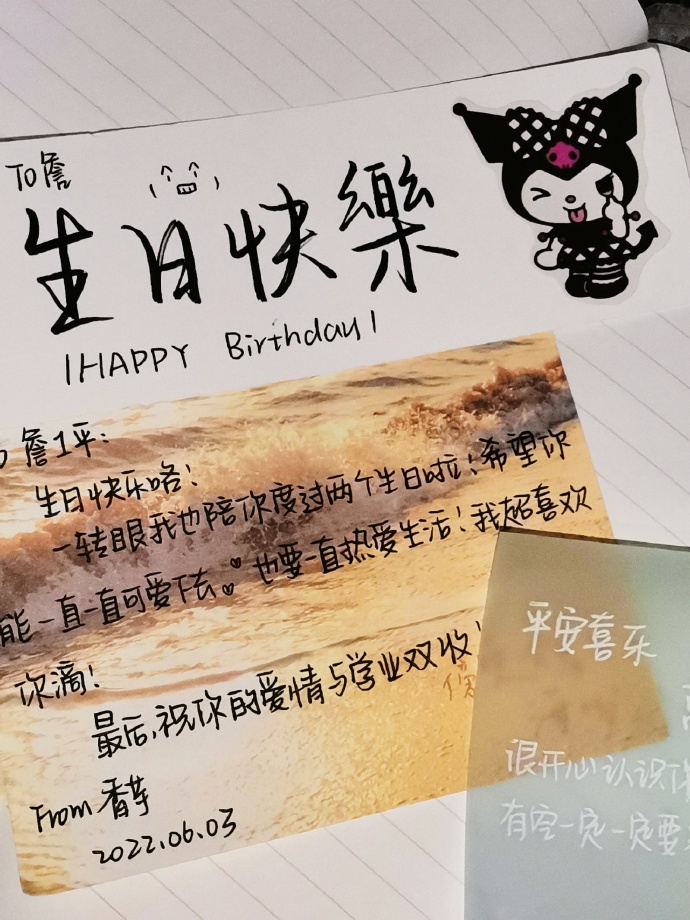 To詹
生日快樂
HAPPY Birthday
詹1平：
生日快乐咯！
一转眼我也陪你度过两个生日啦！希望你
能一直一直可爱下去。也要一直热爱生活！我超喜欢
你滴！
最后，祝你的爱情与学业双收！
From 香芋
2022.06.03
平安喜乐
很开心认识你
有空一定一定要